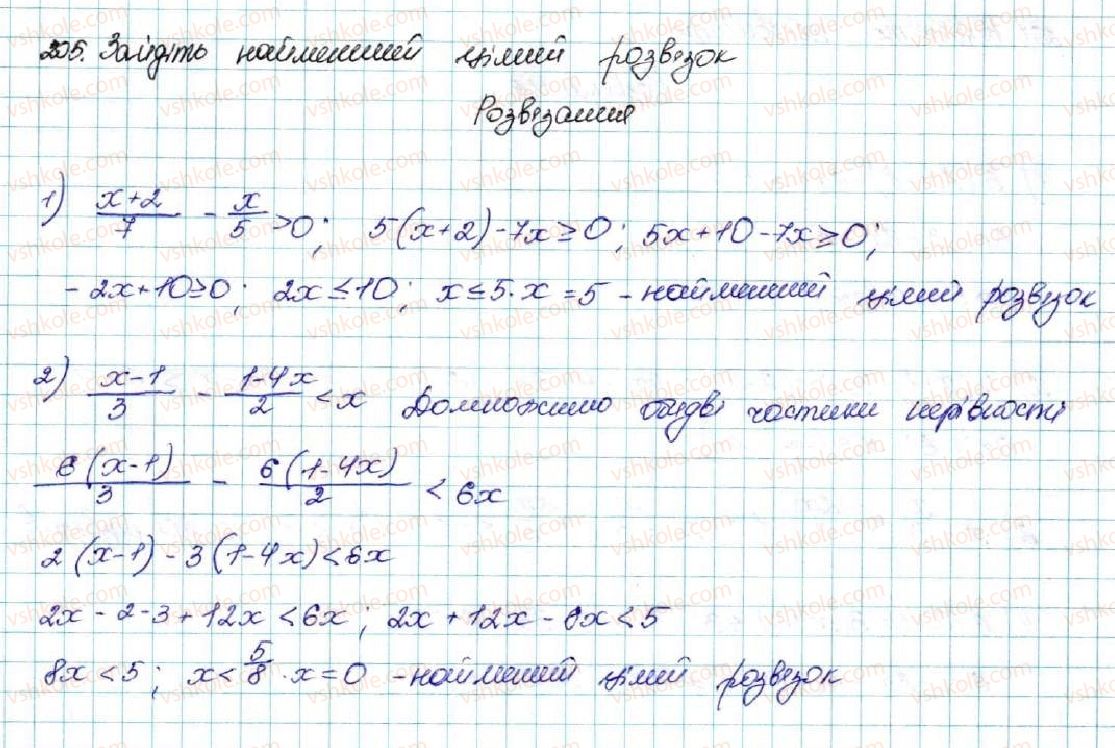 205. Знайдіть найменший цілий розвязок
Розвязання
1) x+2/7 - x/5 > 0; 5(x+2)-7x≥0; 5x+10-7x≥0;
-2x+10≥0; 2x≤10; x≤5. x=5 - найменший цілий розвязок
2) x-1/3 - 1-4x/2 < x Домножимо обидві частини нерівності
6(x-1)/3 - 6(1-4x)/2 < 6x
2(x-1)-3(1-4x)<6x
2x-2-3+12x<6x; 2x+12x-6x<5
8x<5; x<5/8. x=0 - найменший цілий розвязок